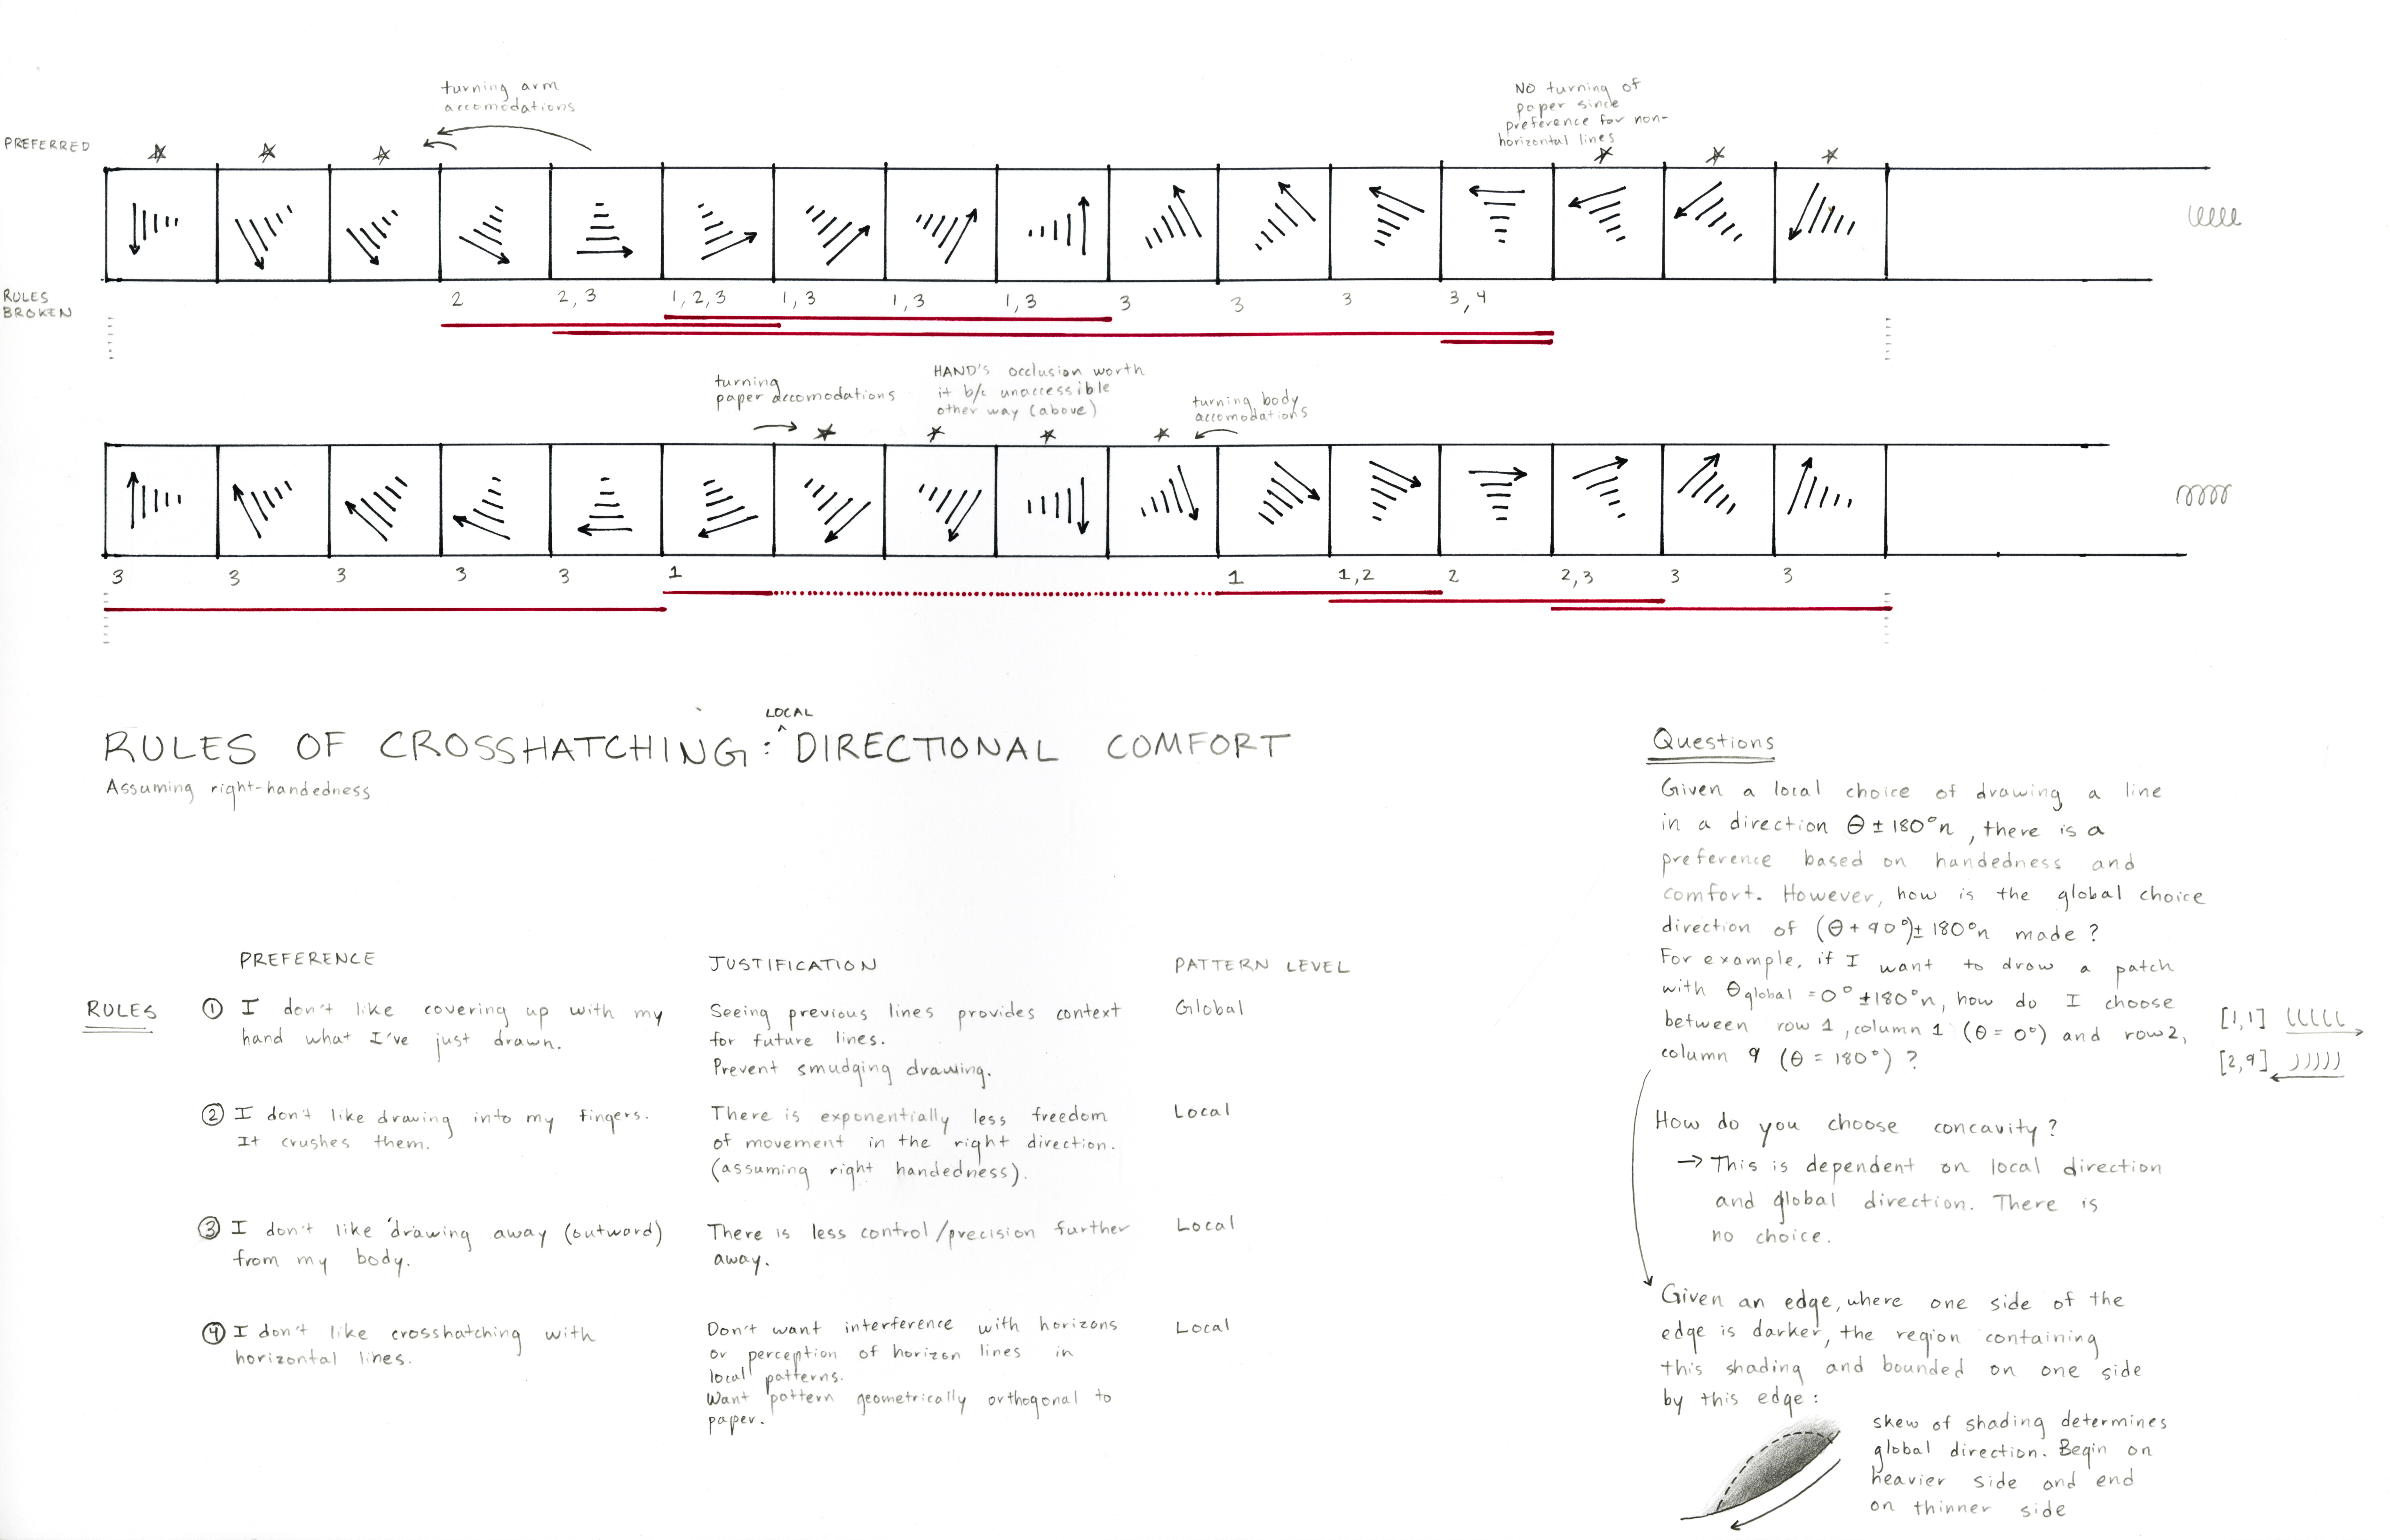 turning arm
accomodations
NO turning of
paper since
preference for non-
horizontal lines
PREFERRED
RULES
BROKEN
2
2, 3
1, 2, 3
1, 3
1, 3
1, 3
3
3
3
3, 4
turning
paper accomodations
HAND'S occlusion worth
it b/c unaccessible
other way (above)
turning body
accomodations
3
3
3
3
3
1
1
1, 2
2
2, 3
3
3
LOCAL
RULES OF CROSSHATCHING: ^ DIRECTIONAL COMFORT
Assuming right-handedness
PREFERENCE
JUSTIFICATION
PATTERN LEVEL
RULES
① I don't like covering up with my
hand what I've just drawn.
Seeing previous lines provides context
for future lines.
Prevent smudging drawing.
Global
② I don't like drawing into my fingers.
It crushes them.
There is exponentially less freedom
of movement in the right direction.
(assuming right handedness).
Local
③ I don't like drawing away (outword)
from my body.
There is less control/precision further
away.
Local
④ I don't like crosshatching with
horizontal lines.
Don't want interference with horizons
or perception of horizon lines in
local patterns.
Want pattern geometrically orthogonal to
paper.
Local
Questions
Given a local choice of drawing a line
in a direction θ ± 180°n, there is a
preference based on handedness and
comfort. However, how is the global choice
direction of (θ + 90°) ± 180°n made?
For example, if I want to draw a patch
with θglobal = 0° ± 180°n, how do I choose
between row 1, column 1 (θ = 0°) and row 2,
column 9 (θ = 180°)?
[1,1]
[2,9]
How do you choose concavity?
→ This is dependent on local direction
and global direction. There is
no choice.
Given an edge, where one side of the
edge is darker, the region containing
this shading and bounded on one side
by this edge:
skew of shading determines
global direction. Begin on
heavier side and end
on thinner side